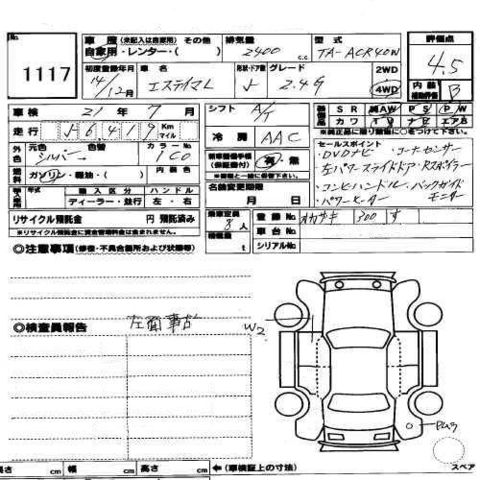 No.
1117
車歴 (未記入は自家用) その他
自家用・レンター・( )
排気量
2400 c.c
型式
TA-ACR40W
評価点
4.5
初度登録年月
14/12月
車名
エスティマL
形状・ドア数
グレード
2.4G
2WD
4WD
内装
補助評価
B
車検 21年 7月
シフト
A/T
SR 純AW PS PW
カワ TV ナビ エアB
※純正品に限り装備に○をつけて下さい。
走行 Km マイル
冷房
AAC
セールスポイント
・DVDナビ ・コーナーセンサー
左パワースライドドア・Rスポイラー
・コンビハンドル・バックガイド
モニター
・パワーヒーター
外色 元色 色替
シルバー
カラーNo
1C0
新車整備手帳
(保証書付)
有・無
※書類と一緒に保管下さい。
燃料 ガソリン・軽油・( )
内装色
名義変更期限
月 日
年式 輸入区分 ハンドル
ディーラー・並行 左・右
リサイクル預託金 円 預託済み
※リサイクル預託金に資金管理料金は含まれません。
乗車定員
8人
積載量
t
登録No.
300 す
車台No.
シリアルNo.
◎注意事項 (修復・不具合箇所および状態等)
◎検査員報告
左面事故
W2
スペア
長さ cm 幅 cm 高さ cm ← (車検証上の寸法)